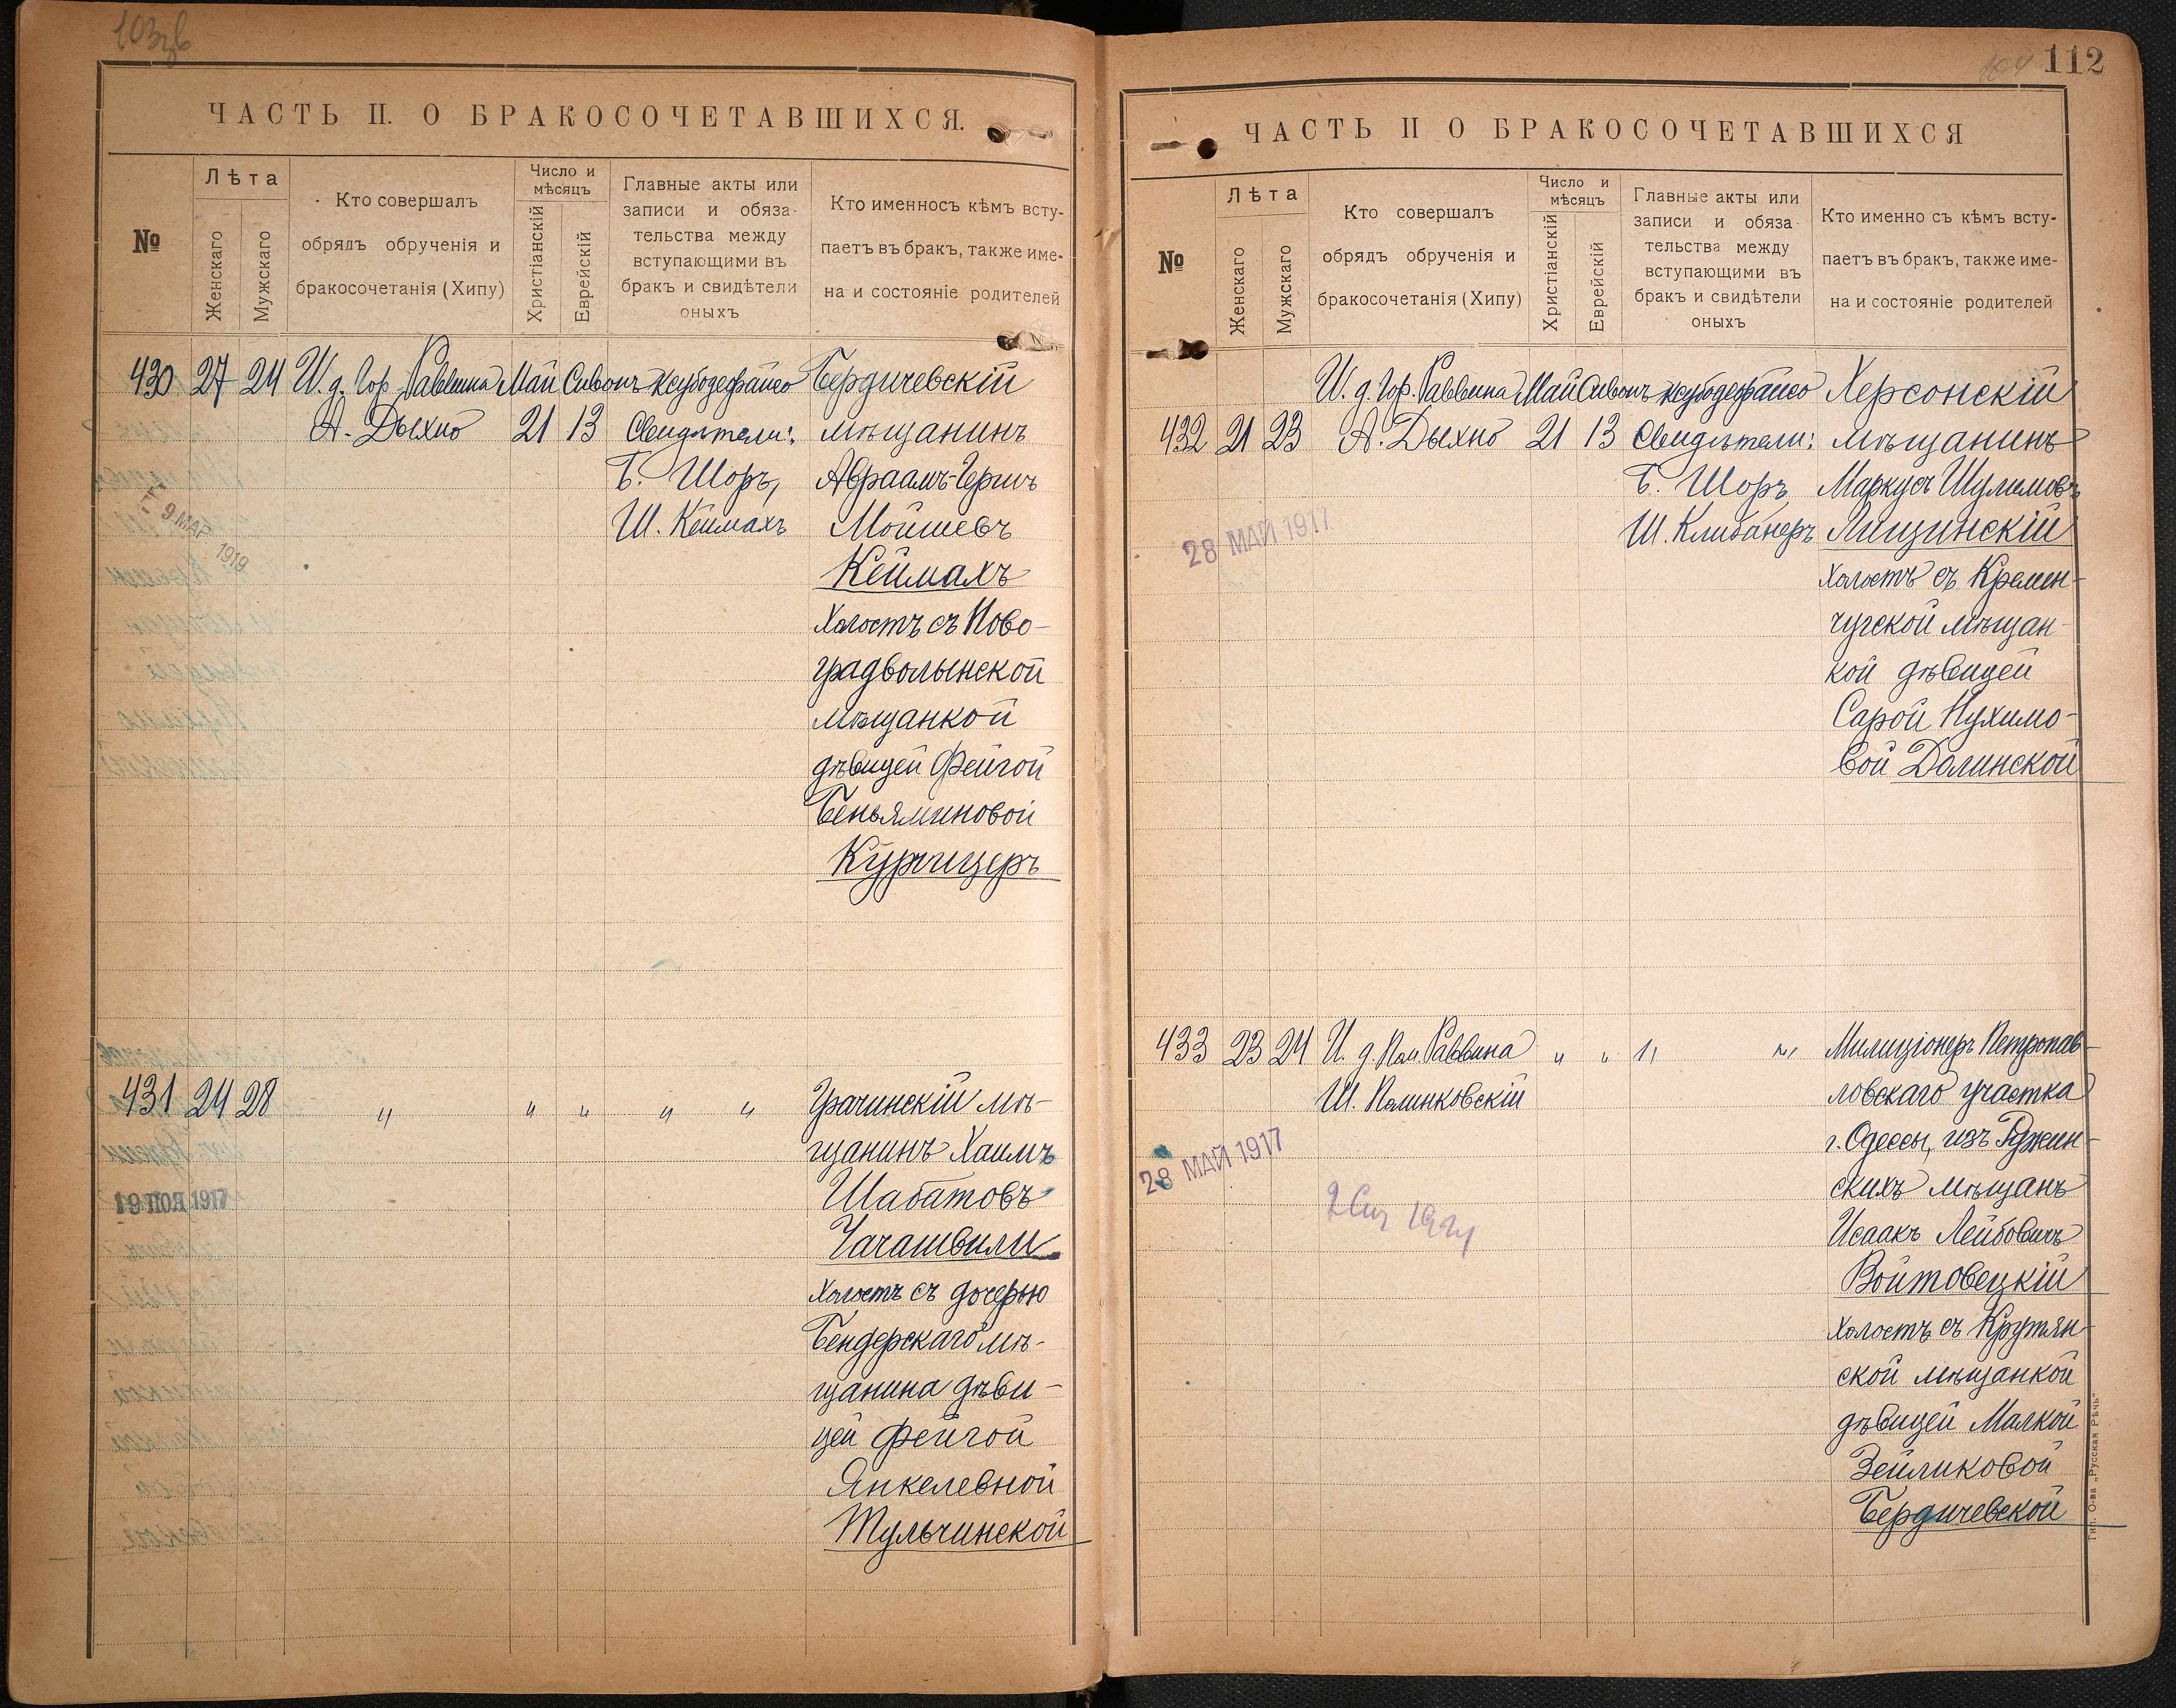 103зв
ЧАСТЬ II. О БРАКОСОЧЕТАВШИХСЯ.
№
Лѣта
Женскаго
Мужскаго
Кто совершалъ
обрядъ обрученія и
бракосочетанія (Хипу)
Число и
мѣсяцъ
Христіанскій
Еврейскій
Главные акты или
записи и обяза-
тельства между
вступающими въ
бракъ и свидѣтели
оныхъ
Кто именносъ кѣмъ всту-
паетъ въ бракъ, также име-
на и состояніе родителей
430 27 24 И. д. Гор. Раввина Май Сивонъ Ксубодефайсо Бердичевскій
А. Дыхно 21 13 Свидѣтели: мѣщанинъ
Б. Шоръ, Авраамъ-Гершъ
Ш. Кеймахъ Мойшевъ
9 МАР 1919
Кеймахъ
Холостъ съ Ново-
градволынской
мѣщанкой
дѣвицей Фейгой
Беньяминовой
Курчицеръ
431 24 28 " " " " " Грачинскій мѣ-
щанинъ Хаимъ
19 НОЯ 1917
Шабатовъ
Чачашвили
Холостъ съ дочерью
Бендерскаго мѣ-
щанина дѣви-
цей Фейгой
Янкелевной
Тульчинской
112
ЧАСТЬ II О БРАКОСОЧЕТАВШИХСЯ
№
Лѣта
Женскаго
Мужскаго
Кто совершалъ
обрядъ обрученія и
бракосочетанія (Хипу)
Число и
мѣсяцъ
Христіанскій
Еврейскій
Главные акты или
записи и обяза
тельства между
вступающими въ
бракъ и свидѣтели
оныхъ
Кто именно съ кѣмъ всту-
паетъ въ бракъ, также име-
на и состояніе родителей
И. д. Гор. Раввина Май Сивонъ Ксубодефайсо Херсонскій
432 21 23 А. Дыхно 21 13 Свидѣтели: мѣщанинъ
Б. Шоръ Маркусъ Шулимовъ
Ш. Клибанеръ Лищинскій
28 МАЙ 1917
Холостъ съ Кремен-
чугской мѣщан-
кой дѣвицей
Сарой Нухимо-
вой Долинской
433 23 24 И. д. Пом. Раввина " " " " Милиціонеръ Петропав-
Ш. Полинковскій ловскаго участка
28 МАЙ 1917
г. Одессы, изъ Ружин-
скихъ мѣщанъ
Исаакъ Лейбовичъ
Войтовецкій
Холостъ съ Крутян-
ской мѣщанкой
дѣвицей Малкой
Зейликовой
Бердичевской
Тип. О-ва „Русская Рѣчь"